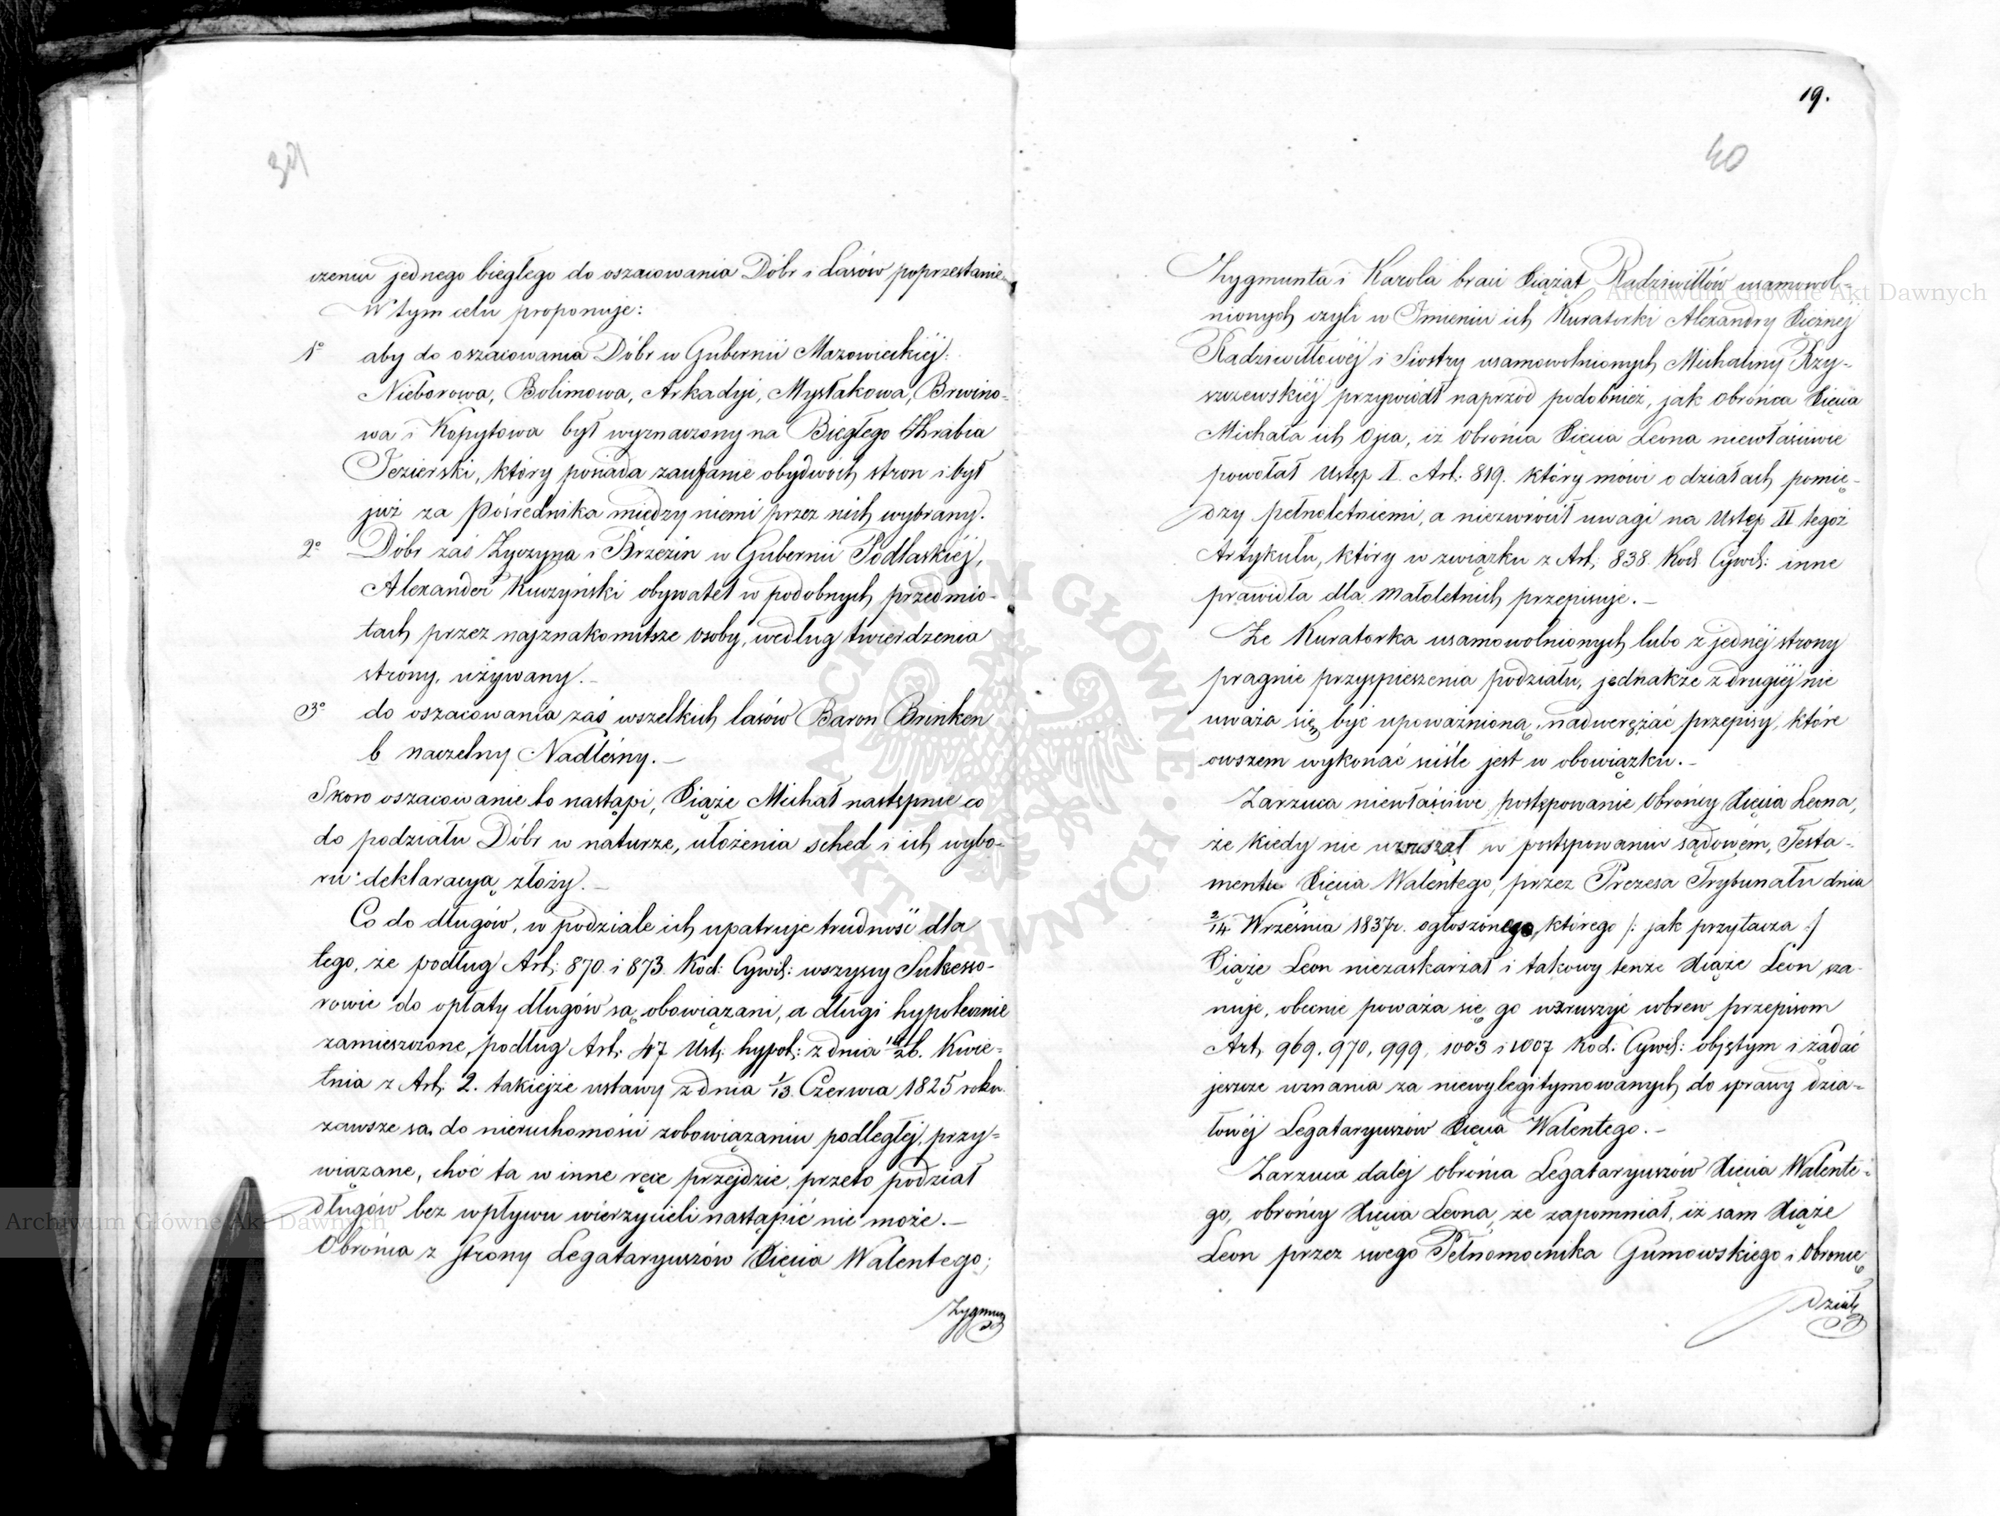 39
czeniu jednego biegłego do oszacowania Dóbr i Lasów poprzestanie.
W tym celu proponuje:
1º aby do oszacowania Dóbr w Gubernii Mazowieckiéj:
Nieborowa, Bolimowa, Arkadyi, Mysłakowa, Brwino-
wa i Kopytowa był wyznaczony na Biegłego Hrabia
Jezierski, który posiada zaufanie obydwóch stron i był
już za Pośrednika między niemi przez nich wybrany.
2º Dóbr zaś Zyczyna i Brzezin w Gubernii Podlaskiéj,
Alexander Kuczyński obywatel w podobnych przedmio-
tach przez najznakomitsze osoby, według twierdzenia
strony, używany.—
3º do oszacowania zaś wszelkich lasów Baron Brinken
b naczelny Nadleśny.—
Skoro oszacowanie to nastąpi, Xiąże Michał następnie co
do podziału Dóbr w naturze, ułożenia sched i ich wybo-
ru deklaracyą złoży.—
Co do długów, w podziale ich upatruje trudność dla
tego, że podług Art: 870. i 873. Kod: Cywil: wszyscy Sukcesso-
rowie do opłaty długów są obowiązani, a długi hypotecznie
zamieszczone, podług Art: 47 Ust: hypot: z dnia 14/26. Kwie-
tnia z Art: 2. takiejże ustawy z dnia 1/13. Czerwca 1825 roku
zawsze są do nieruchomości zobowiązaniu podległéj, przy-
wiązane, choć ta w inne ręce przejdzie, przeto podział
długów bez wpływu wierzycieli nastąpić nie może.—
Obrońca z strony Legataryuszów Xięcia Walentego;
Zygmun
19.
40
Zygmunta i Karola braci Xiążąt Radziwiłłów usamowol-
nionych czyli w Imieniu ich Kuratorki Alexandry Xiężnéj
Radziwiłłowéj i Siostry usamowolnionych Michaliny Rzy-
szczewskiéj przywiódł naprzód podobnież, jak Obrońca Xięcia
Michała ich Ojca, iż Obrońca Xięcia Leona niewłaściwie
powołał Ustęp I. Art: 819. który mówi o działach pomię-
dzy pełnoletniemi, a niezwrócił uwagi na Ustęp II tegoż
Artykułu, który w związku z Art: 838. Kod Cywil: inne
prawidła dla małoletnich przepisuje.—
Że Kuratorka usamowolnionych lubo z jednéj strony
pragnie przyspieszenia podziału, jednakże z drugiéj nie
uważa się być upoważnioną, nadwerężać przepisy, które
owszem wykonać ściśle jest w obowiązku.—
Zarzuca niewłaściwe postępowanie Obrońcy Xięcia Leona,
że kiedy nie wzruszał w postępowaniu sądowém, Testa-
mentu Xięcia Walentego, przez Prezesa Trybunału dnia
2/14. Września 1837r. ogłoszonego, którego /: jak przytacza :/
Xiąże Leon niezaskarżał i takowy tenże Xiąże Leon sza-
nuje, obecnie poważa się go wzruszyć wbrew przepisom
Art. 969. 970, 999, 1003 i 1007 Kod: Cywil: objętym i żądać
jeszcze uznania za niewylegitymowanych do sprawy dzia-
łowéj Legataryuszów Xięcia Walentego.—
Zarzuca daléj Obrońca Legataryuszów Xięcia Walente-
go, obrońcy Xięcia Leona, że zapomniał, iż sam Xiąże
Leon przez swego Pełnomocnika Gumowskiego i Obronę
dział
Archiwum Główne Akt Dawnych
Archiwum Główne Akt Dawnych
ARCHIWUM GŁÓWNE • AKT DAWNYCH •